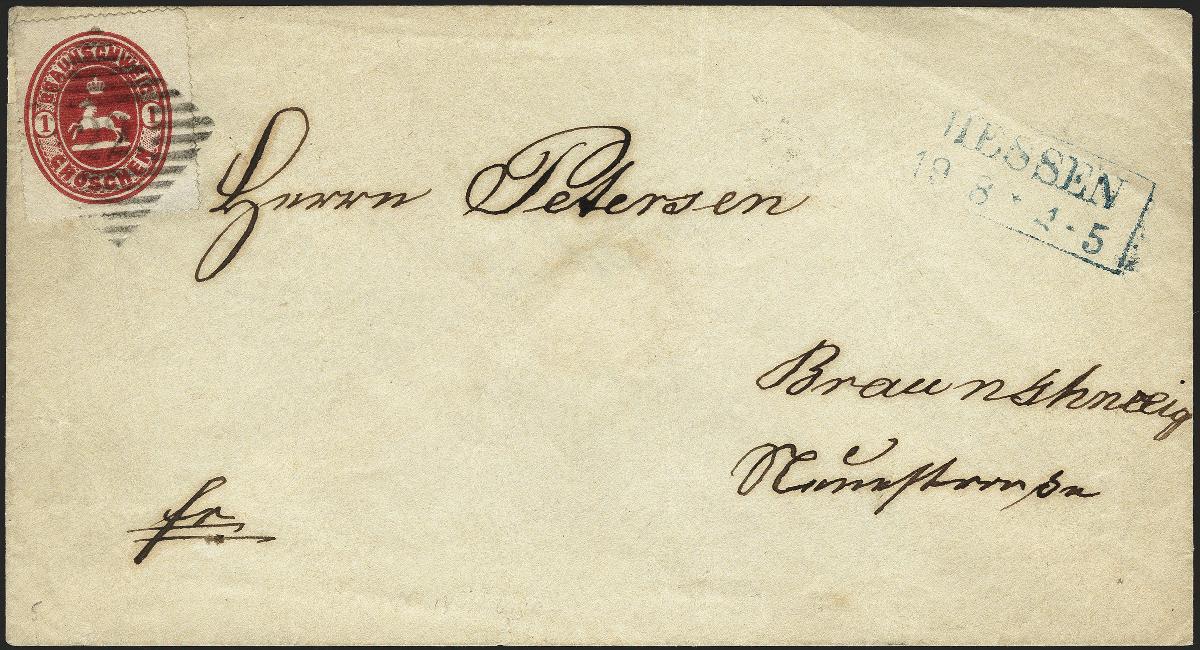 BRAUNSCHWEIG
1 1
GROSCHEN
HESSEN
19 8 * 4-5
Herrn Petersen
Braunschweig
Neuestrasse
fr.